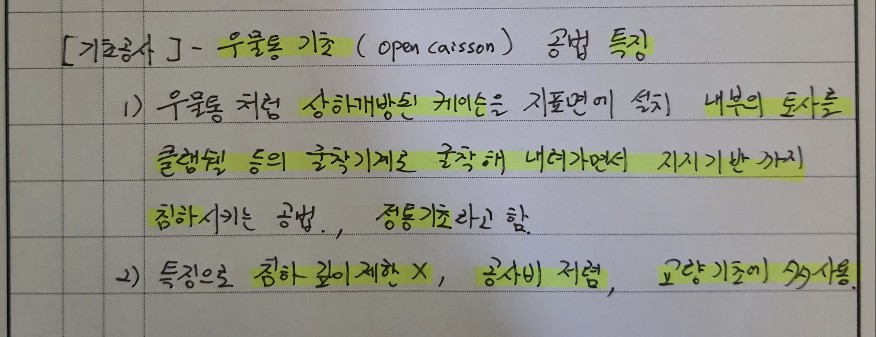 [기초공사] - 우물통 기초 (open caisson) 공법 특징
1) 우물통 처럼 상하개방된 케이슨을 지표면에 설치 내부의 토사를
클램쉘 등의 굴착기계로 굴착해 내려가면서 지지기반 까지
침하시키는 공법., 정통기초라고 함.
2) 특징으로 침하 깊이제한 X, 공사비 저렴, 교량기초에 多사용.